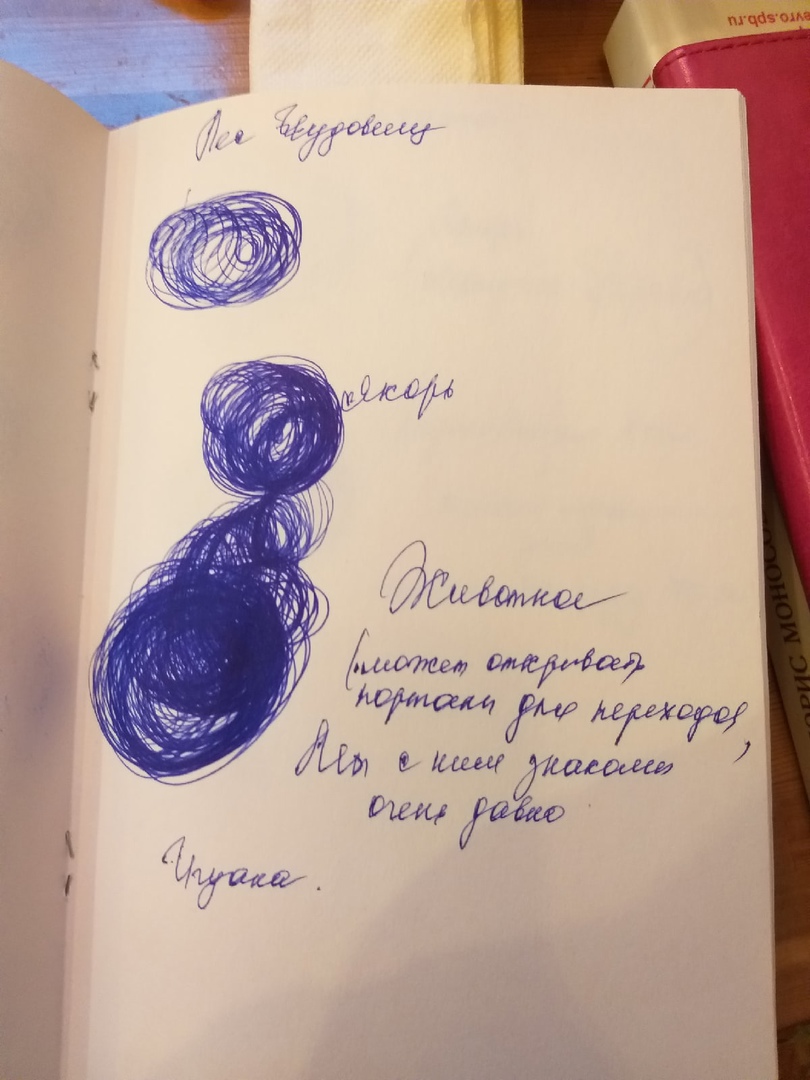 Лес Чудовищ
якорь
Животное
(может открывать
порталы для переходов)
Мы с ним знакомы
очень давно
Игуана.
vro.spb.ru
РИС МОНОСО